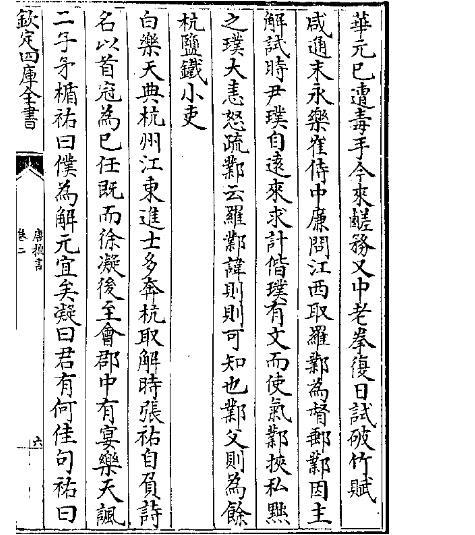 華元已遭毒手今來鹺務又中老拳復日試破竹賦
咸通末永樂崔侍中廉問江西取羅鄴為督郵鄴因主
解試時尹璞自逺來求計偕璞有文而使氣鄴挾私黜
之璞大恚怒疏鄴云羅鄴諱則則可知也鄴父則為餘
杭鹽鐵小吏
白樂天典杭州江東進士多奔杭取解時張祐自負詩
名以首冠為已任既而徐凝後至會郡中有宴樂天諷
二子矛楯祐曰僕為解元宜矣凝曰君有何佳句祐曰
欽定四庫全書
唐摭言
卷二
六